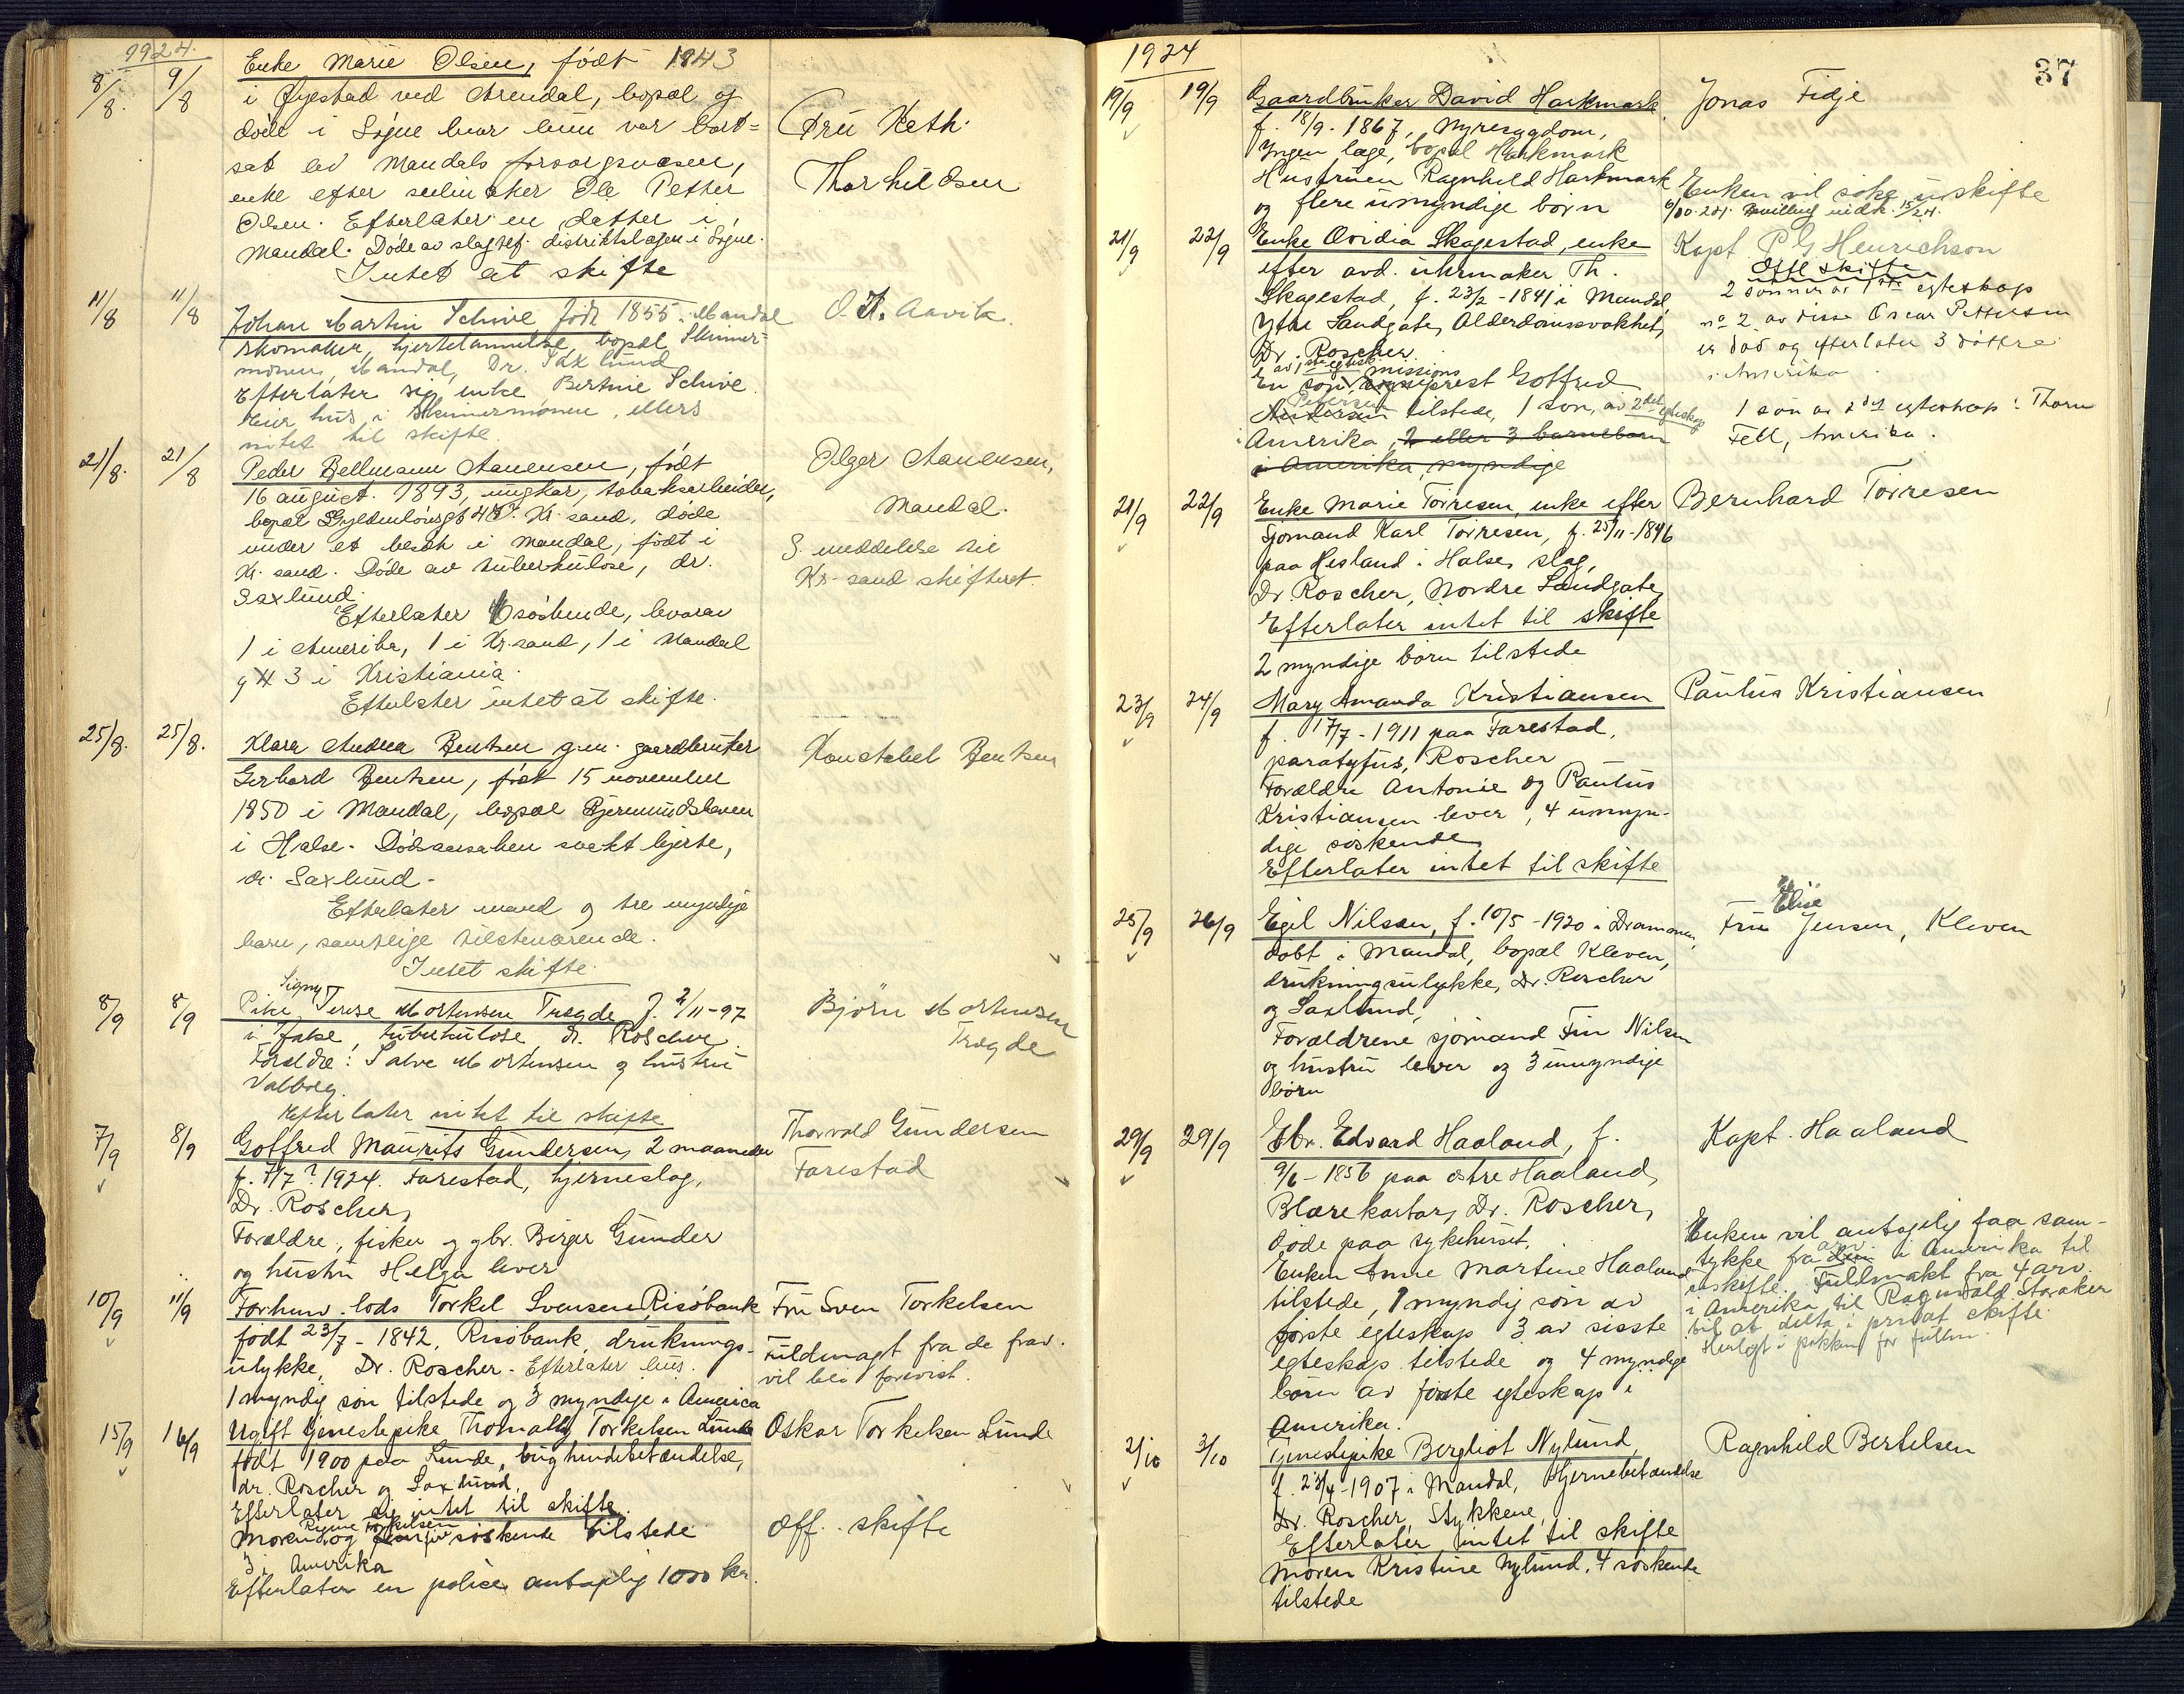 1924.
8/8. 9/8
Enke Marie Olsen, født 1843
i Øyestad ved Arendal, bopæl og
døde i Søgne hvor hun var bort=
sat av Mandals forsorgsvæsen,
enke efter seilmaker Ole Petter
Olsen. Efterlater en datter i
Mandal. Døde av slag ifl. distriktslægen i Søgne.
Intet at skifte
Fru Kath.
Thorkildsen
11/8 11/8
Johan Martin Schive født 1855 Mandal
skomaker, hjertelammelse, bopæl Skinner=
monen, Mandal, Dr. Saxlund
Efterlater sig enke Bertine Schive
Eier hus i Skinnermonen, ellers
intet til skifte.
O. K. Aavik
21/8. 21/8
Peder Bellmann Aanensen, født
16 august 1893, ungkar, tobaksarbeider,
bopæl Gyldenløvsgt 47. Kr. sand, døde
under et besøk i Mandal, født i
Kr. sand. Døde av tuberkulose, dr.
Saxlund.
Efterlater 6 søskende, hvorav
1 i Amerika, 1 i Kr.sand, 1 i Mandal
og 3 i Kristiania.
Efterlater intet at skifte.
Olger Aanensen,
Mandal.
S. meddelelse til
Kr. sand skifteret.
25/8. 25/8.
Klara Andrea Bentsen g.m. gaardbruker
Gerhard Bentsen, født 15 november
1850 i Mandal, bopæl Gjermundshaven
i Halse. Dødsaarsaken svakt hjerte,
dr. Saxlund.
Efterlater mand og tre myndige
barn, samtlige tilstenærende.
Intet skifte.
Konstabel Bentsen
8/9 8/9
Signy
Pike Terese Mortensen Tregde f. 2/11-97
i Halse, tuberkulose, dr. Roscher.
Forældre: Salve Mortensen og hustru
Valborg.
Efterlater intet til skifte
Bjørn Mortensen
Tregde
7/9 8/9
Gotfred Maurits Gundersen, 2 maaneder
f. 7/7? 1924. Farestad, hjerneslag,
Dr. Roscher,
Forældre, fisker og gbr. Birger Gunder
og hustru Helga lever
Thorvald Gundersen
Farestad
10/9 11/9
Forhenv. lods Torkel Svensen, Risøbank
født 23/7 - 1842, Risøbank, druknings-
ulykke, Dr. Roscher. Efterlater hus.
1 myndig søn tilstede og 3 myndige i America
Fru Sven Torkelsen
Fuldmagt fra de frav.
vil bli forevist.
15/9 16/9
Ugift tjenestepike Thomally Torkelsen Lunde
født 1900 paa Lunde, bughindebetændelse,
dr. Roscher og Saxlund,
Efterlater sig intet til skifte.
Regine Torkelsen
Moren og søskende tilstede
3 i Amerika
Efterlater en police antagelig 1000 kr.
Oskar Torkelsen Lunde
Off. skifte
1924
37
19/9 19/9
Gaardbruker David Harkmark
f. 18/9. 1867, Nyresygdom,
Yngen læge, bopæl Harkmark
Hustruen Ragnhild Harkmark
og flere umyndige børn
Jonas Fidje
Enken vil søke uskifte
6/10.24. Bevilling uidst. 15/24.
21/9 22/9
Enke Ovidia Skagestad, enke
efter avd. uhrmaker Th.
Skagestad, f. 23/2 - 1841 i Mandal
Ytre Sandgate, Alderdomssvakhet,
Dr. Roscher.
av 1ste egtesk. missions
En søn sogneprest Gotfred
Petersen
Andersen tilstede, 1 søn, av 2det egteskap
i Amerika, 2 eller 3 barnebarn
i Amerika, myndige
Kapt P G Henrichson
Offl skifte
2 sønner av 1ste egteskap
no 2 av disse Oscar Pettersen
er død og efterlater 3 døttre
i Amerika
1 søn av 2det egteskap: Thorv
Fell, Amerika.
21/9 22/9
Enke Marie Tørresen, enke efter
Sjømand Karl Tørresen, f. 25/11-1846
paa Hesland i Halse, slag,
Dr. Roscher, Nordre Sandgate,
Efterlater intet til skifte
2 myndige børn tilstede
Bernhard Tørresen
23/9 24/9
Mary Amanda Kristiansen
f. 17/7 - 1911 paa Farestad,
paratyfus, Roscher
Forældre Antonie og Paulus
Kristiansen lever, 4 umyn-
dige søskende
Efterlater intet til skifte
Paulus Kristiansen
25/9 26/9
Egil Nilsen, f. 10/5 - 1920 i Drammen,
døbt i Mandal, bopæl Kleven,
drukningsulykke, Dr. Roscher
og Saxlund,
Forældrene sjømand Finn Nilsen
og hustru lever og 3 umyndige
børn
Elise
Fru Jensen, Kleven
29/9 29/9
Gbr. Edvard Haaland, f.
9/6 - 1856 paa østre Haaland,
Blærekatar, Dr. Roscher,
døde paa sykehuset,
Enken Anne Martine Haaland
tilstede, 1 myndig søn av
første egteskap 3 av sisste
egteskap tilstede og 4 myndige
børn av første egteskap i
Amerika.
Kapt. Haaland
Enken vil antagelig faa sam-
tykke fra arv i Amerika til
uskifte. Fullmakt fra 4 arv.
i Amerika til Ragnvald Storaker
til at delta i privat skifte.
Henlagt i pakken for fullm.
2/10 3/10
Tjenestepike Bergliot Nylund,
f. 23/4-1907 i Mandal, Hjernebetændelse
Dr. Roscher, Stykkene,
Efterlater intet til skifte
Moren Kristine Nylund, 4 søskende
tilstede
Ragnhild Bertelsen